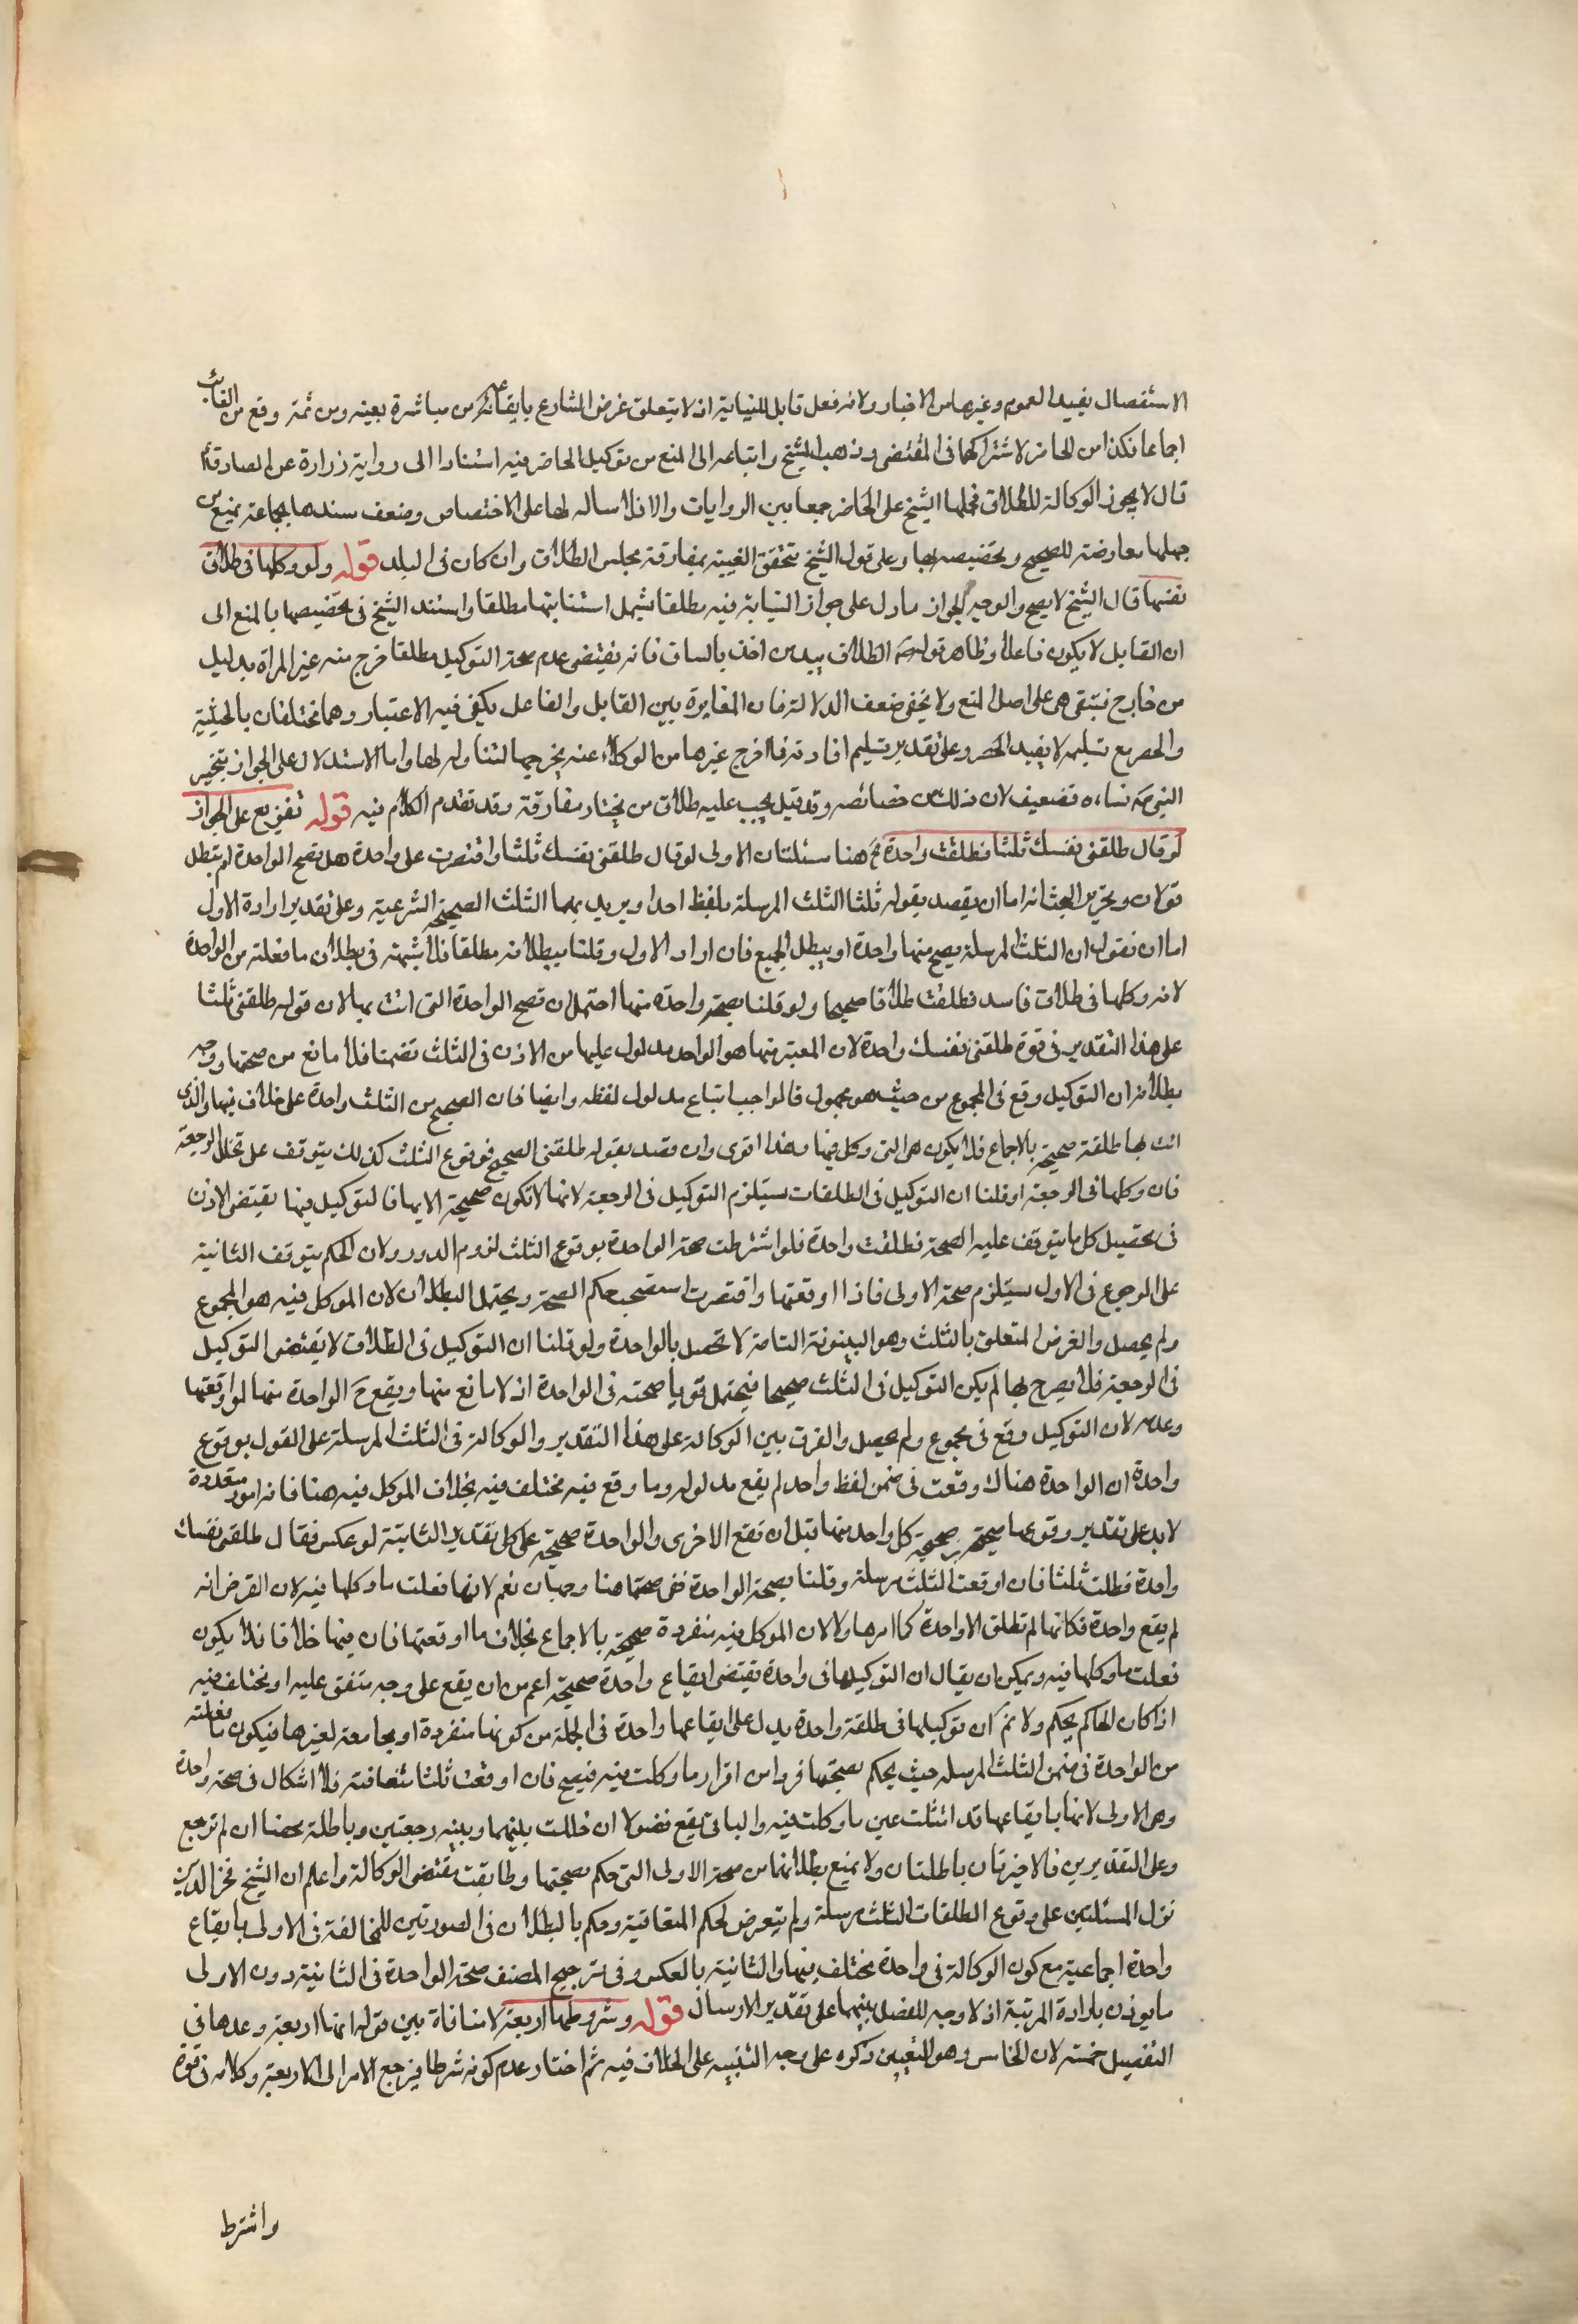 الاستفصال يفيد العموم وغيرها من الاخبار ولانه فعل قابل للنيابة اذ لا يتعلق غرض الشارع بايقاعه من مباشرة بعينه ومن ثمة وقع من الغائب
اجماعا فكذا من الحاضر لاشتراكهما في المقتضى وذهب الشيخ واتباعه الى المنع من توكيل الحاضر فيه استنادا الى رواية زرارة عن الصادق ع
قال لا يجوز الوكالة للطلاق فحملها الشيخ على الحاضر جمعا بين الروايات والا فلا اساله لها على الاختصاص وضعف سندها بجماعة يمنع من
جعلها معارضة للصحيح وتخصيصه بها وعلى قول الشيخ تتحقق الغيبة بمفارقة مجلس الطلاق وان كان في البلد قوله ولو وكلها في طلاق
نفسها قال الشيخ لا يصح والوجه الجواز ما دل على جواز النيابة فيه مطلقا يشمل استنابتها مطلقا واستند الشيخ في تخصيصها بالمنع الى
ان القابل لا يكون فاعلا وظاهر قوله ص الطلاق بيد من اخذ بالساق فانه يقتضي عدم صحة التوكيل مطلقا خرج منه غير المراة بدليل
من خارج فتبقى هي على اصل المنع ولا يخفى ضعف الدلالة فان المغايرة بين القابل والفاعل يكفي فيه الاعتبار وهما مختلفان بالحيثية
والحصر مع تسليمه لا يفيد الحصر وعلى تقدير تسليم افادته فما اخرج غيرها من الوكلاء عنه يخرجها لتناوله لها واما الاستدلال على الجواز بتخيير
النبي ص نساءه فضعيف لان ذلك من خصائصه وقد قيل يجب عليه طلاق من يختار مفارقة وقد تقدم الكلام فيه قوله تفريع على الجواز
لو قال طلقي نفسك ثلثا فطلقت واحدة الخ هنا مسئلتان الاولى لو قال طلقي نفسك ثلثا واقتصرت على واحدة هل تصح الواحدة ام تبطل
قولان وتحرير البحث انه اما ان يقصد بقوله ثلثا الثلث المرسلة بلفظ احد او يريد بها الثلث الصحيحة الشرعية وعلى تقدير ارادة الاول
اما ان نقول ان الثلث المرسلة يصح منها واحدة او يبطل الجميع فان اراد الاول وقلنا ببطلانه مطلقا فلا شبهة في بطلان ما فعلته من الواحدة
لانه وكلها في طلاق فاسد فطلقت طلاقا صحيحا ولو قلنا بصحة واحدة منها احتمل ان تصح الواحدة التي اتت بها لان قوله طلقي ثلثا
على هذا التقدير في قوة طلقي نفسك واحدة لان المعتبر منها هو الواحد مدلول عليها من الاذن في الثلث تضمنا فلا مانع من صحتها ووجه
بطلانه ان التوكيل وقع في المجموع من حيث هو مجموع فالواجب اتباع مدلول لفظه وايضا فان الصحيح من الثلث واحدة على خلاف فيها والذي
اتت بها طلقة صحيحة بالاجماع فلا يكون هي التي وكل فيها وهذا اقوى وان قصد بقوله طلقي الصحيح فوقوع الثلث كذلك يتوقف على تخلل الرجعة
فان وكلها في الرجعة او قلنا ان التوكيل في الطلقات يستلزم التوكيل في الرجعة لانها لا تكون صحيحة الا بها فالتوكيل فيها يقتضي الاذن
في تحصيل كل ما يتوقف عليه الصحة فطلقت واحدة فلو اشترطت صحة الواحدة بوقوع الثلث لزوم الدور ولان الحكم يتوقف الثانية
على الرجوع في الاول يستلزم صحة الاولى فاذا اوقعتها واقتصرت استصحب حكم الصحة ويحتمل البطلان لان الموكل فيه هو المجموع
ولم يحصل والغرض المتعلق بالثلث وهو البينونة التامة لا تحصل بالواحدة ولو قلنا ان التوكيل في الطلاق لا يقتضي التوكيل
في الرجعة فلا يصرح بها لم يكن التوكيل في الثلث صحيحا فيحتمل قويا صحته في الواحدة اذ لا مانع منها ويقع ح الواحدة منها لو اوقعتها
وعدمه لان التوكيل وقع في مجموع ولم يحصل والفرق بين الوكالة على هذا التقدير والوكالة في الثلث المرسلة على القول بوقوع
واحدة ان الواحدة هناك وقعت في ضمن لفظ واحد لم يقع مدلوله وما وقع فيه مختلف فيه بخلاف الموكل فيه هنا فانه امور متعددة
لا بد على تقدير وقوعها صحيحة من صحة كل واحد منها قبل ان تقع الاخرى والواحدة صحيحة على كل تقدير الثانية لو عكس فقال طلقي نفسك
واحدة فطلقت ثلثا فان اوقعت الثلث مرسلة وقلنا بصحة الواحدة ففي صحتها هنا وجهان نعم لانها فعلت ما وكلها فيه لان الفرض انه
لم يقع واحدة فكانها لم تطلق الا واحدة كما امرها ولا لان الموكل فيه منفردة صحيحة بالاجماع بخلاف ما اوقعتها فان فيها خلافا فلا يكون
فعلت ما وكلها فيه ويمكن ان يقال ان التوكيلها في واحدة يقتضي ايقاع واحدة صحيحة اعم من ان يقع على وجه متفق عليه او مختلف فيه
اذا كان الحاكم يحكم ولا ثم ان توكيلها في طلقة واحدة يدل على ايقاعها واحدة في الجملة من كونها منفردة او مجامعة لغيرها فيكون ما فعلته
من الواحدة في ضمن الثلث المرسلة حيث يحكم بصحتها فردا من افراد ما وكلت فيه فيصح فان اوقعت ثلثا متعاقبة فلا اشكال في صحة واحدة
وهي الاولى لانها بايقاعها قد امتثلت عين ما وكلت فيه والباقي يقع فضولا ان خللت بينهما وبينه رجعتين وباطلة محضا ان لم ترجع
وعلى التقديرين فالاخيرتان باطلتان ولا يمنع بطلانهما من صحة الاولى التي حكم بصحتها وطابقت مقتضى الوكالة واعلم ان الشيخ فخر الدين
نزل المسئلتين على وقوع الطلقات الثلث مرسلة ولم يتعرض لحكم المتعاقبة وحكم بالبطلان في الصورتين للمخالفة في الاولى بايقاع
واحدة اجماعية مع كون الوكالة في واحدة مختلف فيها والثانية بالعكس وفي ترجيح المصنف صحة الواحدة في الثانية دون الاولى
ما يؤذن بارادة المرتبة اذ لا وجه للفصل بينهما على تقدير الارسال قوله وشروطها اربعة لا منافاة بين قوله انها اربعة وعدها في
التفصيل خمسة لان الخامس وهو التعيين ذكره على وجه التنبيه على الخلاف فيه ثم اختار عدم كونه شرطا فيرجع الامر الى الاربعة وكلامه في قوة
واشترط